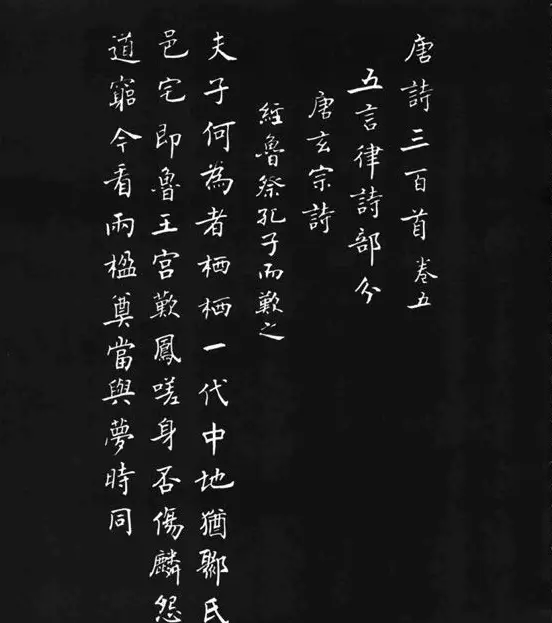 唐詩三百首 卷五
五言律詩部分
唐玄宗詩
經魯祭孔子而歎之
夫子何為者栖栖一代中地猶鄹氏
邑宅即魯王宮歎鳳嗟身否傷麟怨
道窮今看兩楹奠當與夢時同